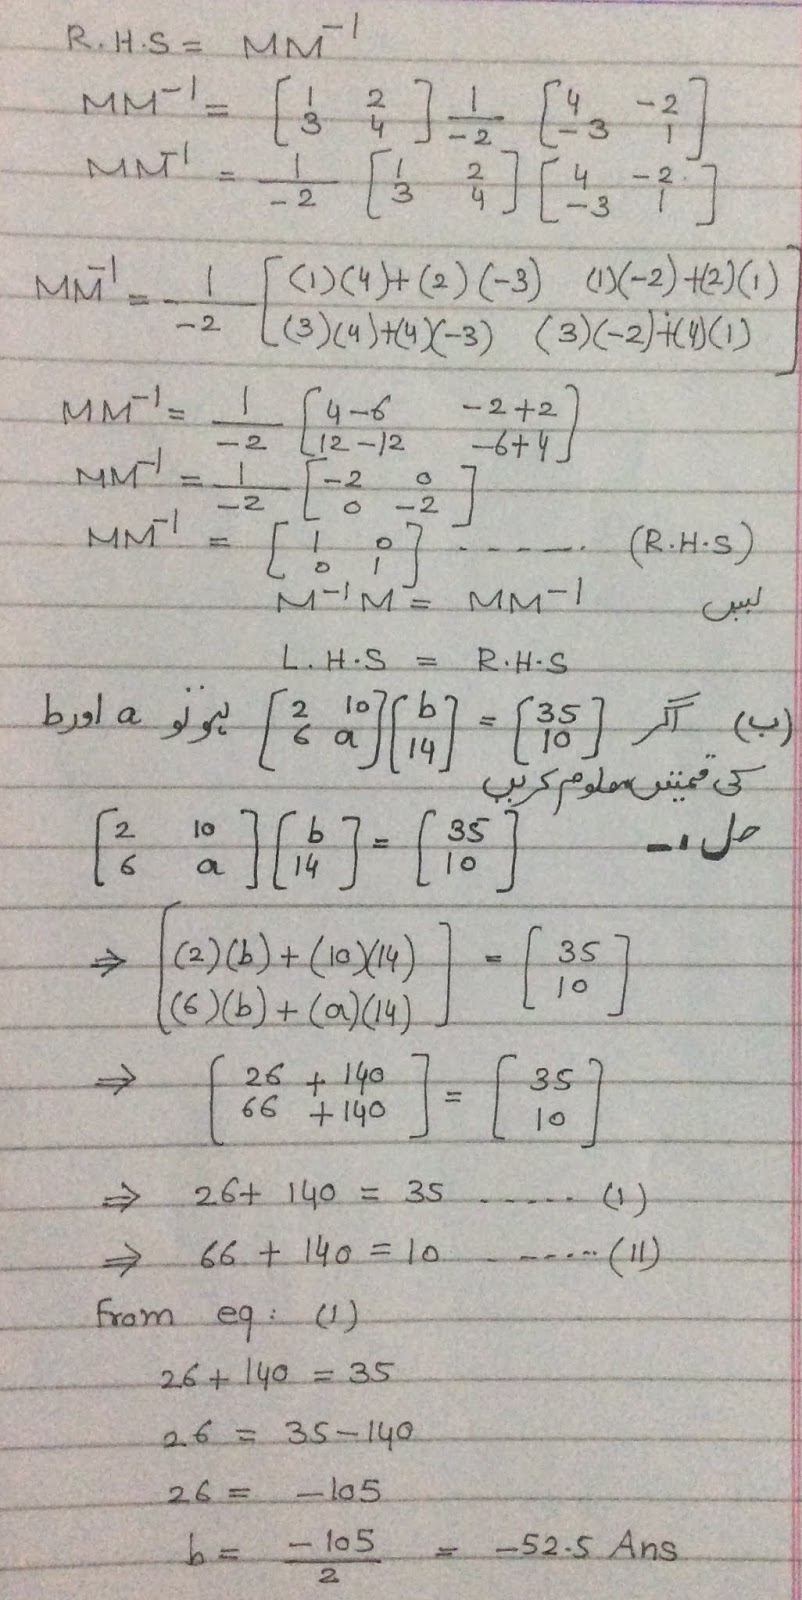 R.H.S = MM⁻¹
MM⁻¹ = [1 2; 3 4] 1/-2 [4 -2; -3 1]
MM⁻¹ = 1/-2 [1 2; 3 4] [4 -2; -3 1]
MM⁻¹ = 1/-2 [(1)(4)+(2)(-3) (1)(-2)+(2)(1); (3)(4)+(4)(-3) (3)(-2)+(4)(1)]
MM⁻¹ = 1/-2 [4-6 -2+2; 12-12 -6+4]
MM⁻¹ = 1/-2 [-2 0; 0 -2]
MM⁻¹ = [1 0; 0 1] ------. (R.H.S)
پس M⁻¹M = MM⁻¹
L.H.S = R.H.S
(ب) اگر [2 10; 6 a] [b; 14] = [35; 10] ہو تو a اور b
کی قیمتیں معلوم کریں
حل :- [2 10; 6 a] [b; 14] = [35; 10]
⇒ [(2)(b)+(10)(14); (6)(b)+(a)(14)] = [35; 10]
⇒ [26 + 140; 66 + 140] = [35; 10]
⇒ 26+ 140 = 35 ------ (I)
⇒ 66 + 140 = 10 ------ (II)
From eq: (I)
26+140 = 35
26 = 35-140
26 = -105
b = -105/2 = -52.5 Ans